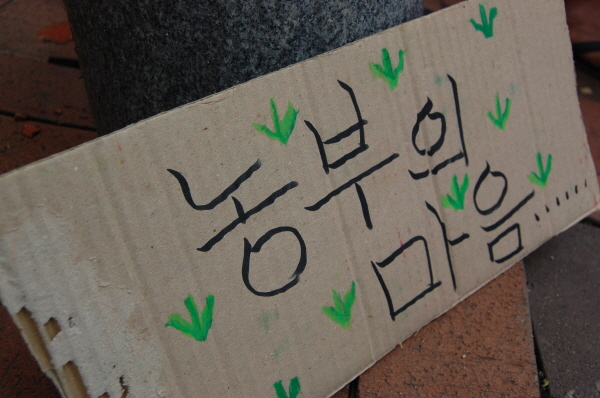 농부의
마음......